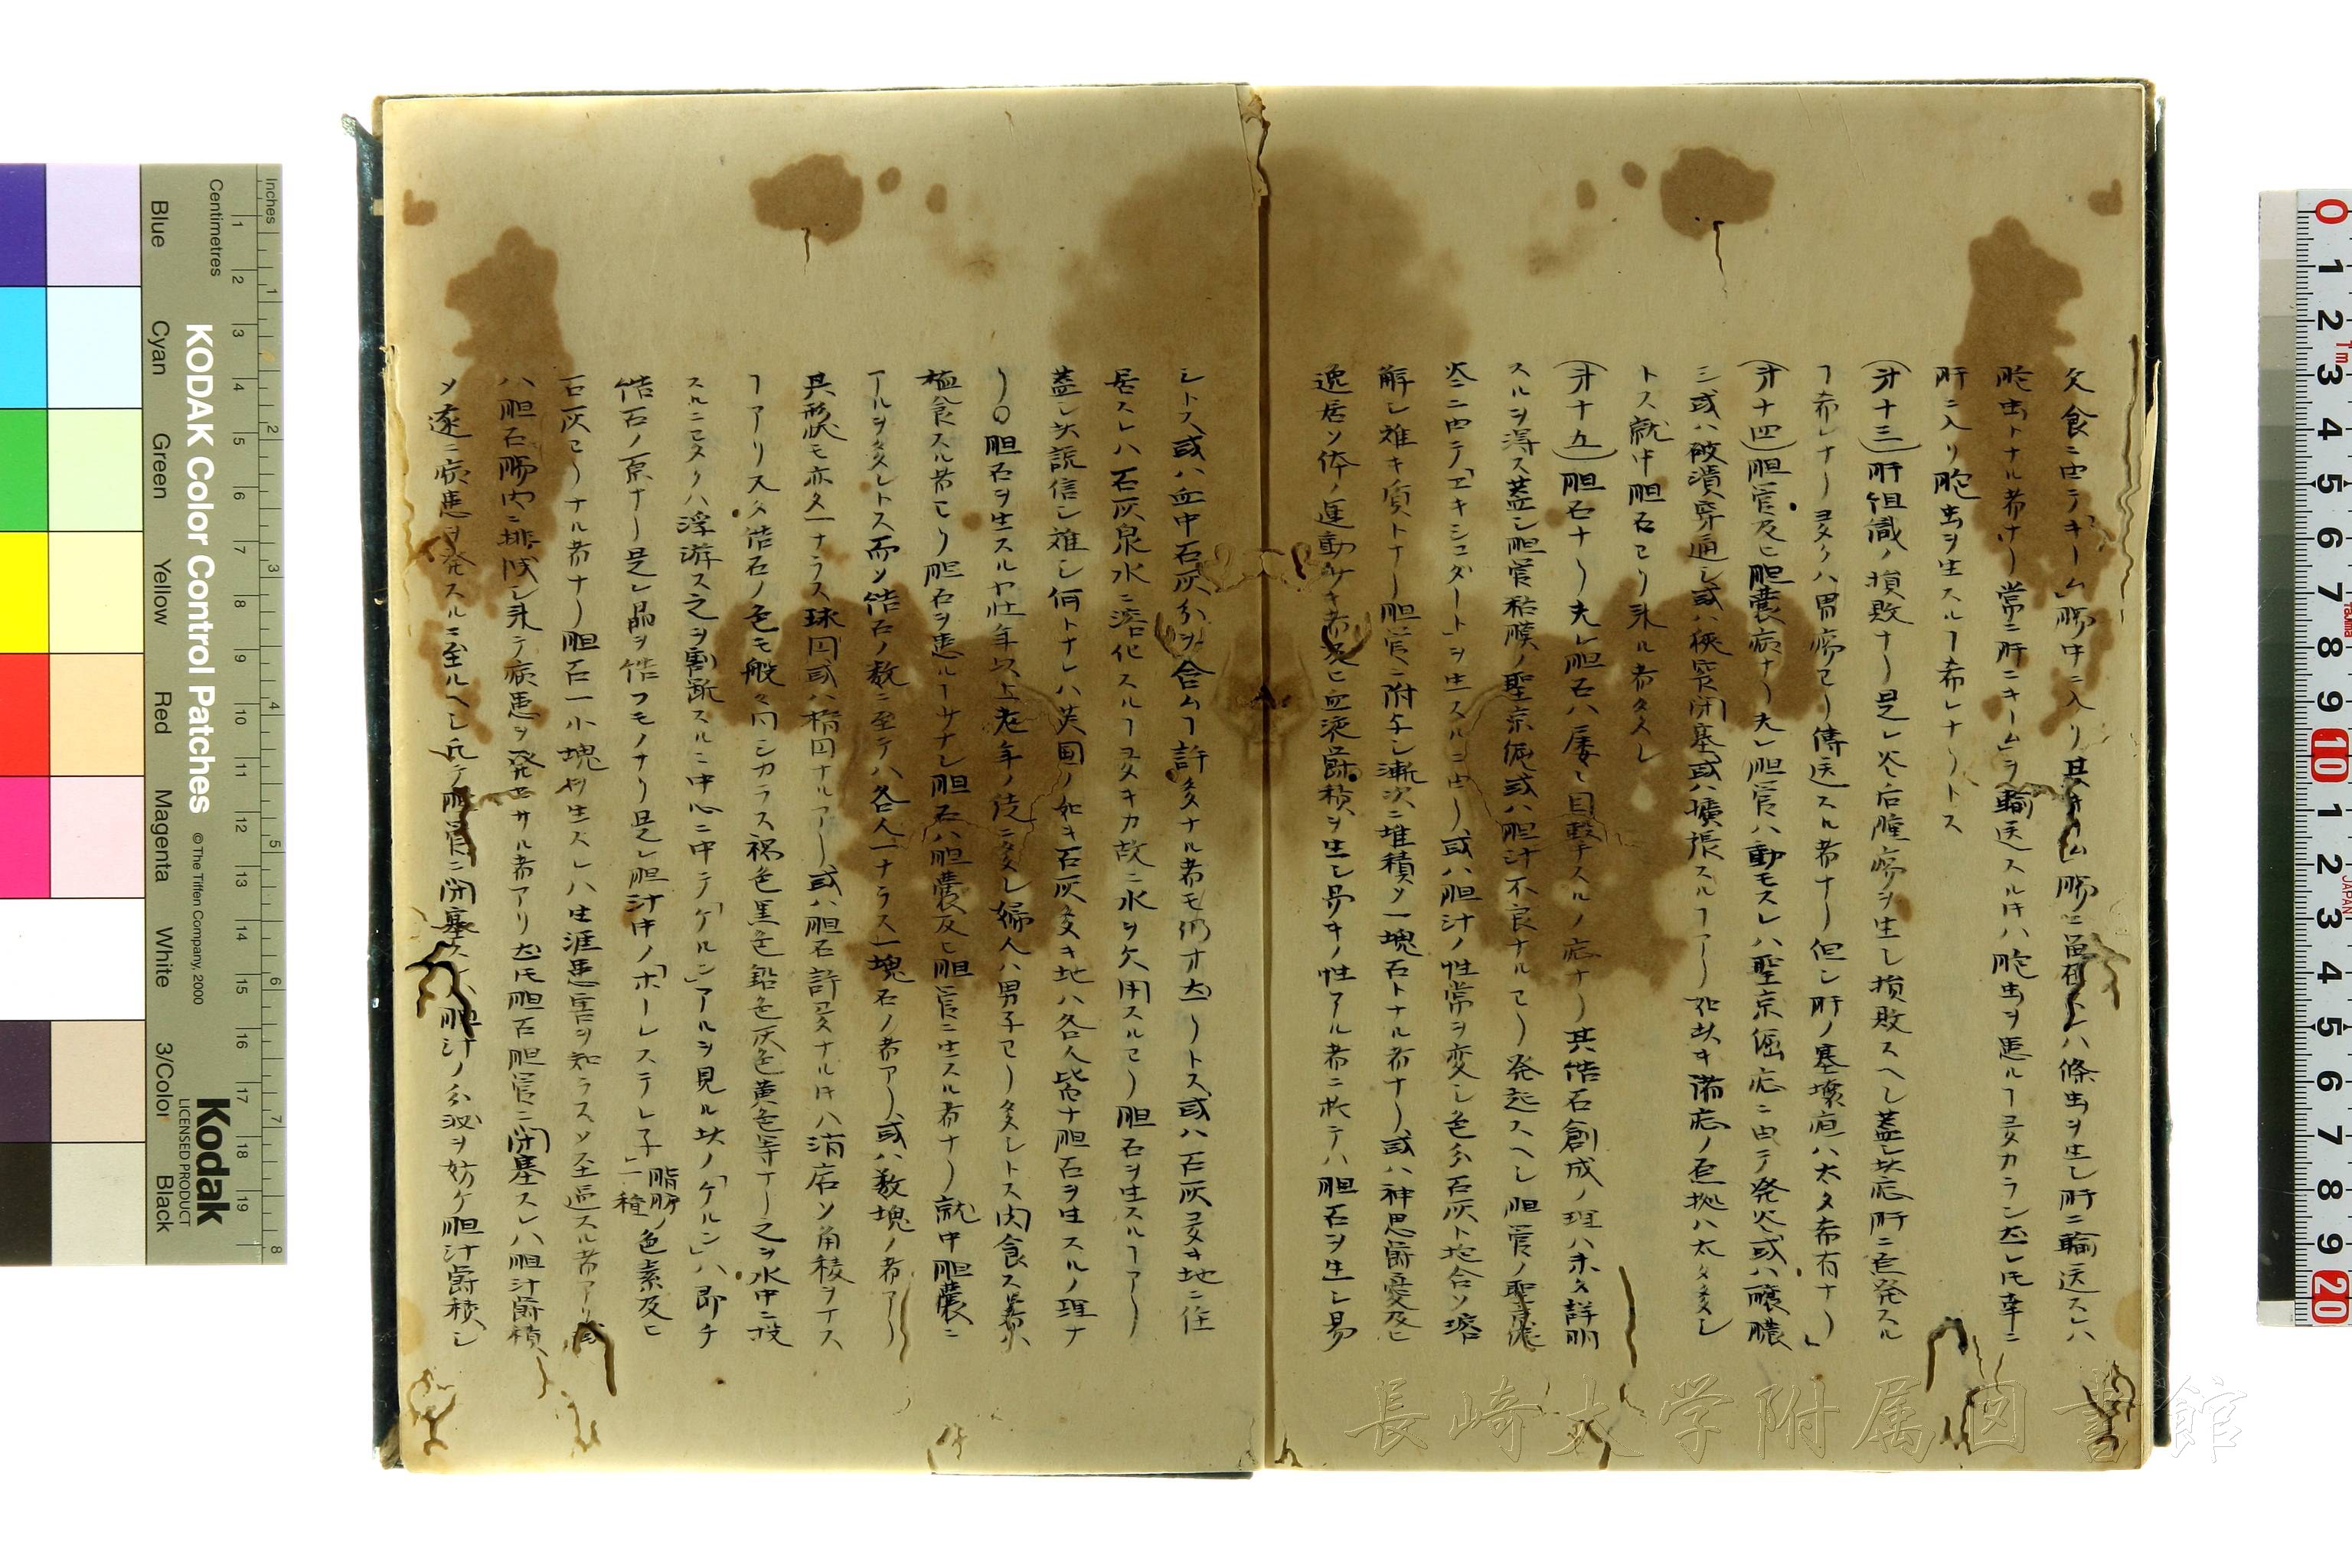 欠食ニ由テ「キーム」腸中ニ入リ其キーム腸ニ留在スレハ條虫ヲ生シ肝ニ輸送スレハ
胞虫トナル者ナリ常ニ肝ニ「キーム」ヲ輸送スル片ハ胞虫ヲ患ルヿ多カラン𪜈レ𪜈幸ニ
肝ニ入リ胞虫ヲ生スルヿ希レナリトス
(才十三)肝組織ノ損敗ナリ是レ炎后腫瘍ヲ生シ損敗スヘシ蓋シ此症肝ニ自発スル
ヿ希レナリ多クハ胃瘍ヨリ傳送スル者ナリ但シ肝ノ壊疽ハ太タ希有ナリ
(才十四)胆管及ヒ胆嚢病ナリ夫レ胆管ハ動モスレハ聖京倔症ニ由テ発炎或ハ醸膿
シ或ハ破潰穿通シ或ハ狹窄閉塞或ハ擴張スルヿアリ 此諸症ノ拠ハ太タ多シ
トス就中胆石ヨリ来ル者多シ
(才十五)胆石ナリ夫レ胆石ハ屡〻目撃スルノ症ナリ其結石創成ノ理ハ未タ詳明
スルヲ得ス蓋シ胆管粘膜ノ聖京倔或ハ胆汁不良ナルヨリ発起スヘシ胆管ノ聖京倔
炎ニ由テ「エキシユダート」ヲ生スルニ由リ或ハ胆汁ノ性常ヲ変シ色分石灰ト抱合ソ溶
解シ難キ質トナリ胆管ニ附与シ漸次ニ堆積ソ一塊石トナル者ナリ或ハ神思鬱憂及ヒ
逸居ソ体ノ運動少キ者及ヒ血液鬱積ヲ生シ易キノ性アル者ニ於テハ胆石ヲ生シ易
シトス或ハ血中石灰分ヲ含ムヿ許多ナル者モ仍オ然リトス或ハ石灰多キ地ニ住
居スレハ石灰泉水ニ溶化スルヿ多キカ故ニ水ヲ欠用スルヨリ胆石ヲ生スルヿアリ
蓋シ此説信シ難シ何トナレハ英国ノ如キ石灰多キ地ハ各人皆ナ胆石ヲ生スルノ理ナ
リ〇胆石ヲ生スルヤ壮年以上老年ノ徒ニ多シ婦人ハ男子ヨリ多シトス肉食ス者ハ
植食スル者ヨリ胆石ヲ患ルヿ少ナシ胆石ハ胆嚢及ヒ胆管ニ生スル者ナリ就中胆嚢ニ
アルヲ多シトス而ソ結石ノ数ニ至テハ各人一ナラス一塊石ノ者アリ或ハ数塊ノ者アリ
其形状モ亦タ一ナラス球円或ハ楕円ナルアリ或ハ胆石許多ナル片ハ消居ソ角稜ヲナス
ヿアリ又タ結石ノ色モ般々同シカラス褐色黒色鉛色灰色黄色等ナリ之ヲ水中ニ投
スルニ多クハ浮游ス之ヲ割断スルニ中心ニ中テ「ケルン」アルヲ見ル此ノ「ケルン」ハ即チ
結石ノ原ナリ是レ品ヲ結フモノナリ是レ胆汁中ノ「ホーレステレ子」脂肪ノ一種色素及ヒ
石灰ヨリナル者ナリ胆石一小塊ヲ生スレハ生涯患害ヲ知ラスソ至過スル者アリ或
ハ胆石腸内ニ排泄シ来テ病患ヲ発セサル者アリ然𪜈胆石胆管ニ閉塞スレハ胆汁鬱積
ソ遂ニ病患ヲ発スルニ至ルヘシ凡テ胆管ニ閉塞スレハ胆汁ノ分泌ヲ妨ケ胆汁鬱積シ
KODAK Color Control Patches
© The Tiffen Company, 2000
Kodak
LICENSED PRODUCT
Inches
Centimetres
Blue
Cyan
Green
Yellow
Red
Magenta
White
3/Color
Black
長崎大学附属図書館
JAPAN